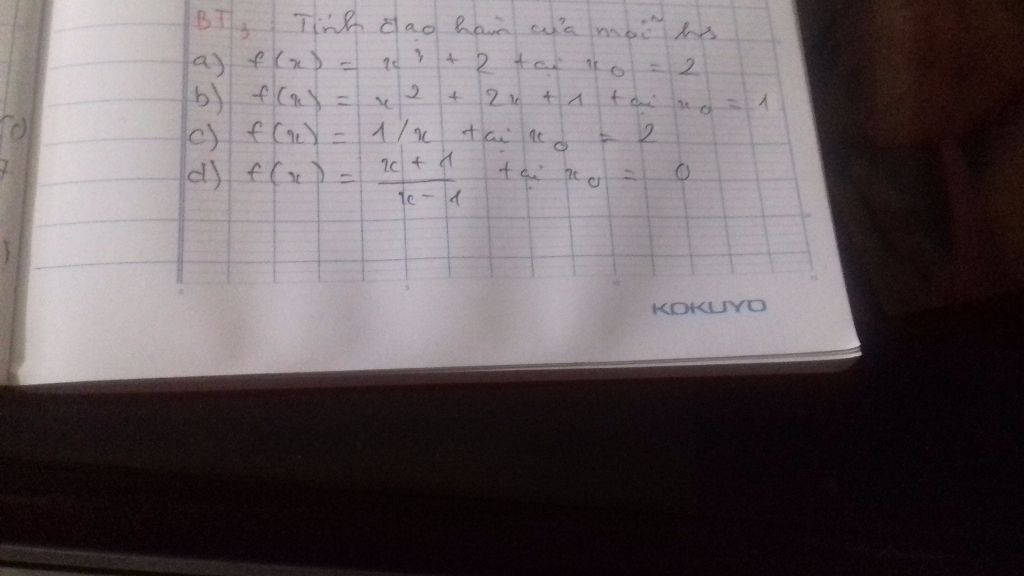 BT3: Tính đạo hàm của mỗi hs
a) f(x) = x³ + 2 tại x₀ = 2
b) f(x) = x² + 2x + 1 tại x₀ = 1
c) f(x) = 1/x tại x₀ = 2
d) f(x) = (x + 1)/(x - 1) tại x₀ = 0
KOKUYO